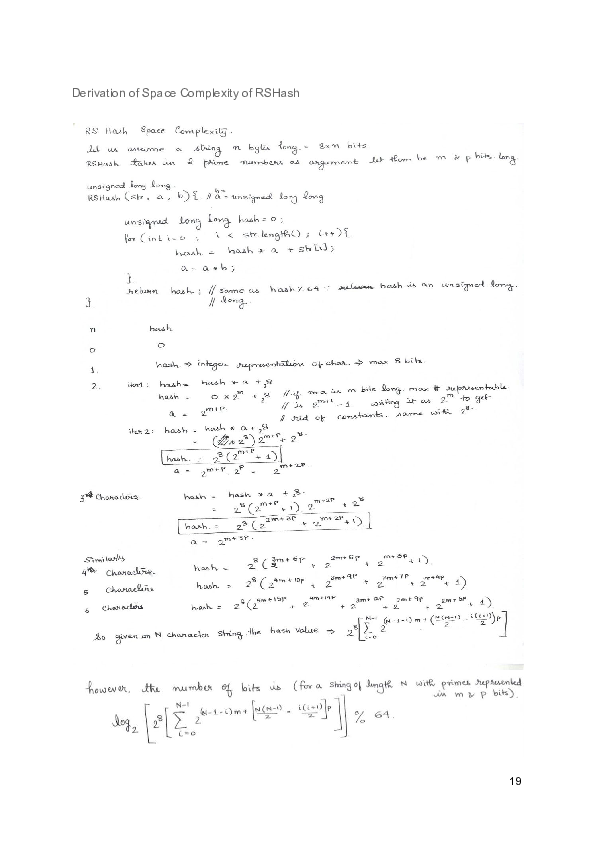 Derivation of Space Complexity of RSHash
RS Hash Space Complexity.
let us assume a string n bytes long. = 8×n bits
RSHash takes in 2 prime numbers as argument let them be m & p bits long
unsigned long long
RSHash (str, a, b) { unsigned long long
unsigned long long hash = 0;
for (int i=0 ; i < str.length() ; i++) {
hash = hash * a + str[i];
a = a * b;
}
return hash; // same as hash % 64 ∵ hash is an unsigned long.
} // long.
n hash
0 0
1. hash → integer representation of char. → max 8 bits.
2. iter 1: hash = hash * a + 2^8
hash = 0 × 2^m + 2^8 // if m a is m bits long, max # representable
a = 2^{m+p} // is 2^{m+1} - 1 writing it as 2^m to get
rid of constants. same with 2^8.
iter 2: hash = hash * a + 2^8
= (2^8) 2^{m+p} + 2^8
hash = 2^8 (2^{m+p} + 1)
a = 2^{m+p} 2^p = 2^{m+2p}
3rd Character hash = hash * a + 2^8
= 2^8 (2^{m+p} + 1) 2^{m+2p} + 2^8
hash = 2^8 (2^{2m+3p} + 2^{m+2p} + 1)
a = 2^{m+3p}
Similarly
4th Character. hash = 2^8 (2^{3m+6p} + 2^{2m+5p} + 2^{m+3p} + 1)
5 Character hash = 2^8 (2^{4m+10p} + 2^{3m+9p} + 2^{2m+7p} + 2^{m+4p} + 1)
6 Characters hash = 2^8 (2^{4m+14p} + 2^{3m+12p} + 2^{2m+9p} + 2^{m+5p} + 1)
So given an N character string the hash value → 2^8 [∑_{i=0}^{N-1} 2^{(N-1-i)m + (N(N-1)/2 - i(i+1)/2)p}]
however, the number of bits is (for a string of length N with primes represented
in m & p bits)
log_2 [2^8 [∑_{i=0}^{N-1} 2^{(N-1-i)m + [N(N-1)/2 - i(i+1)/2]p}]] % 64.
19